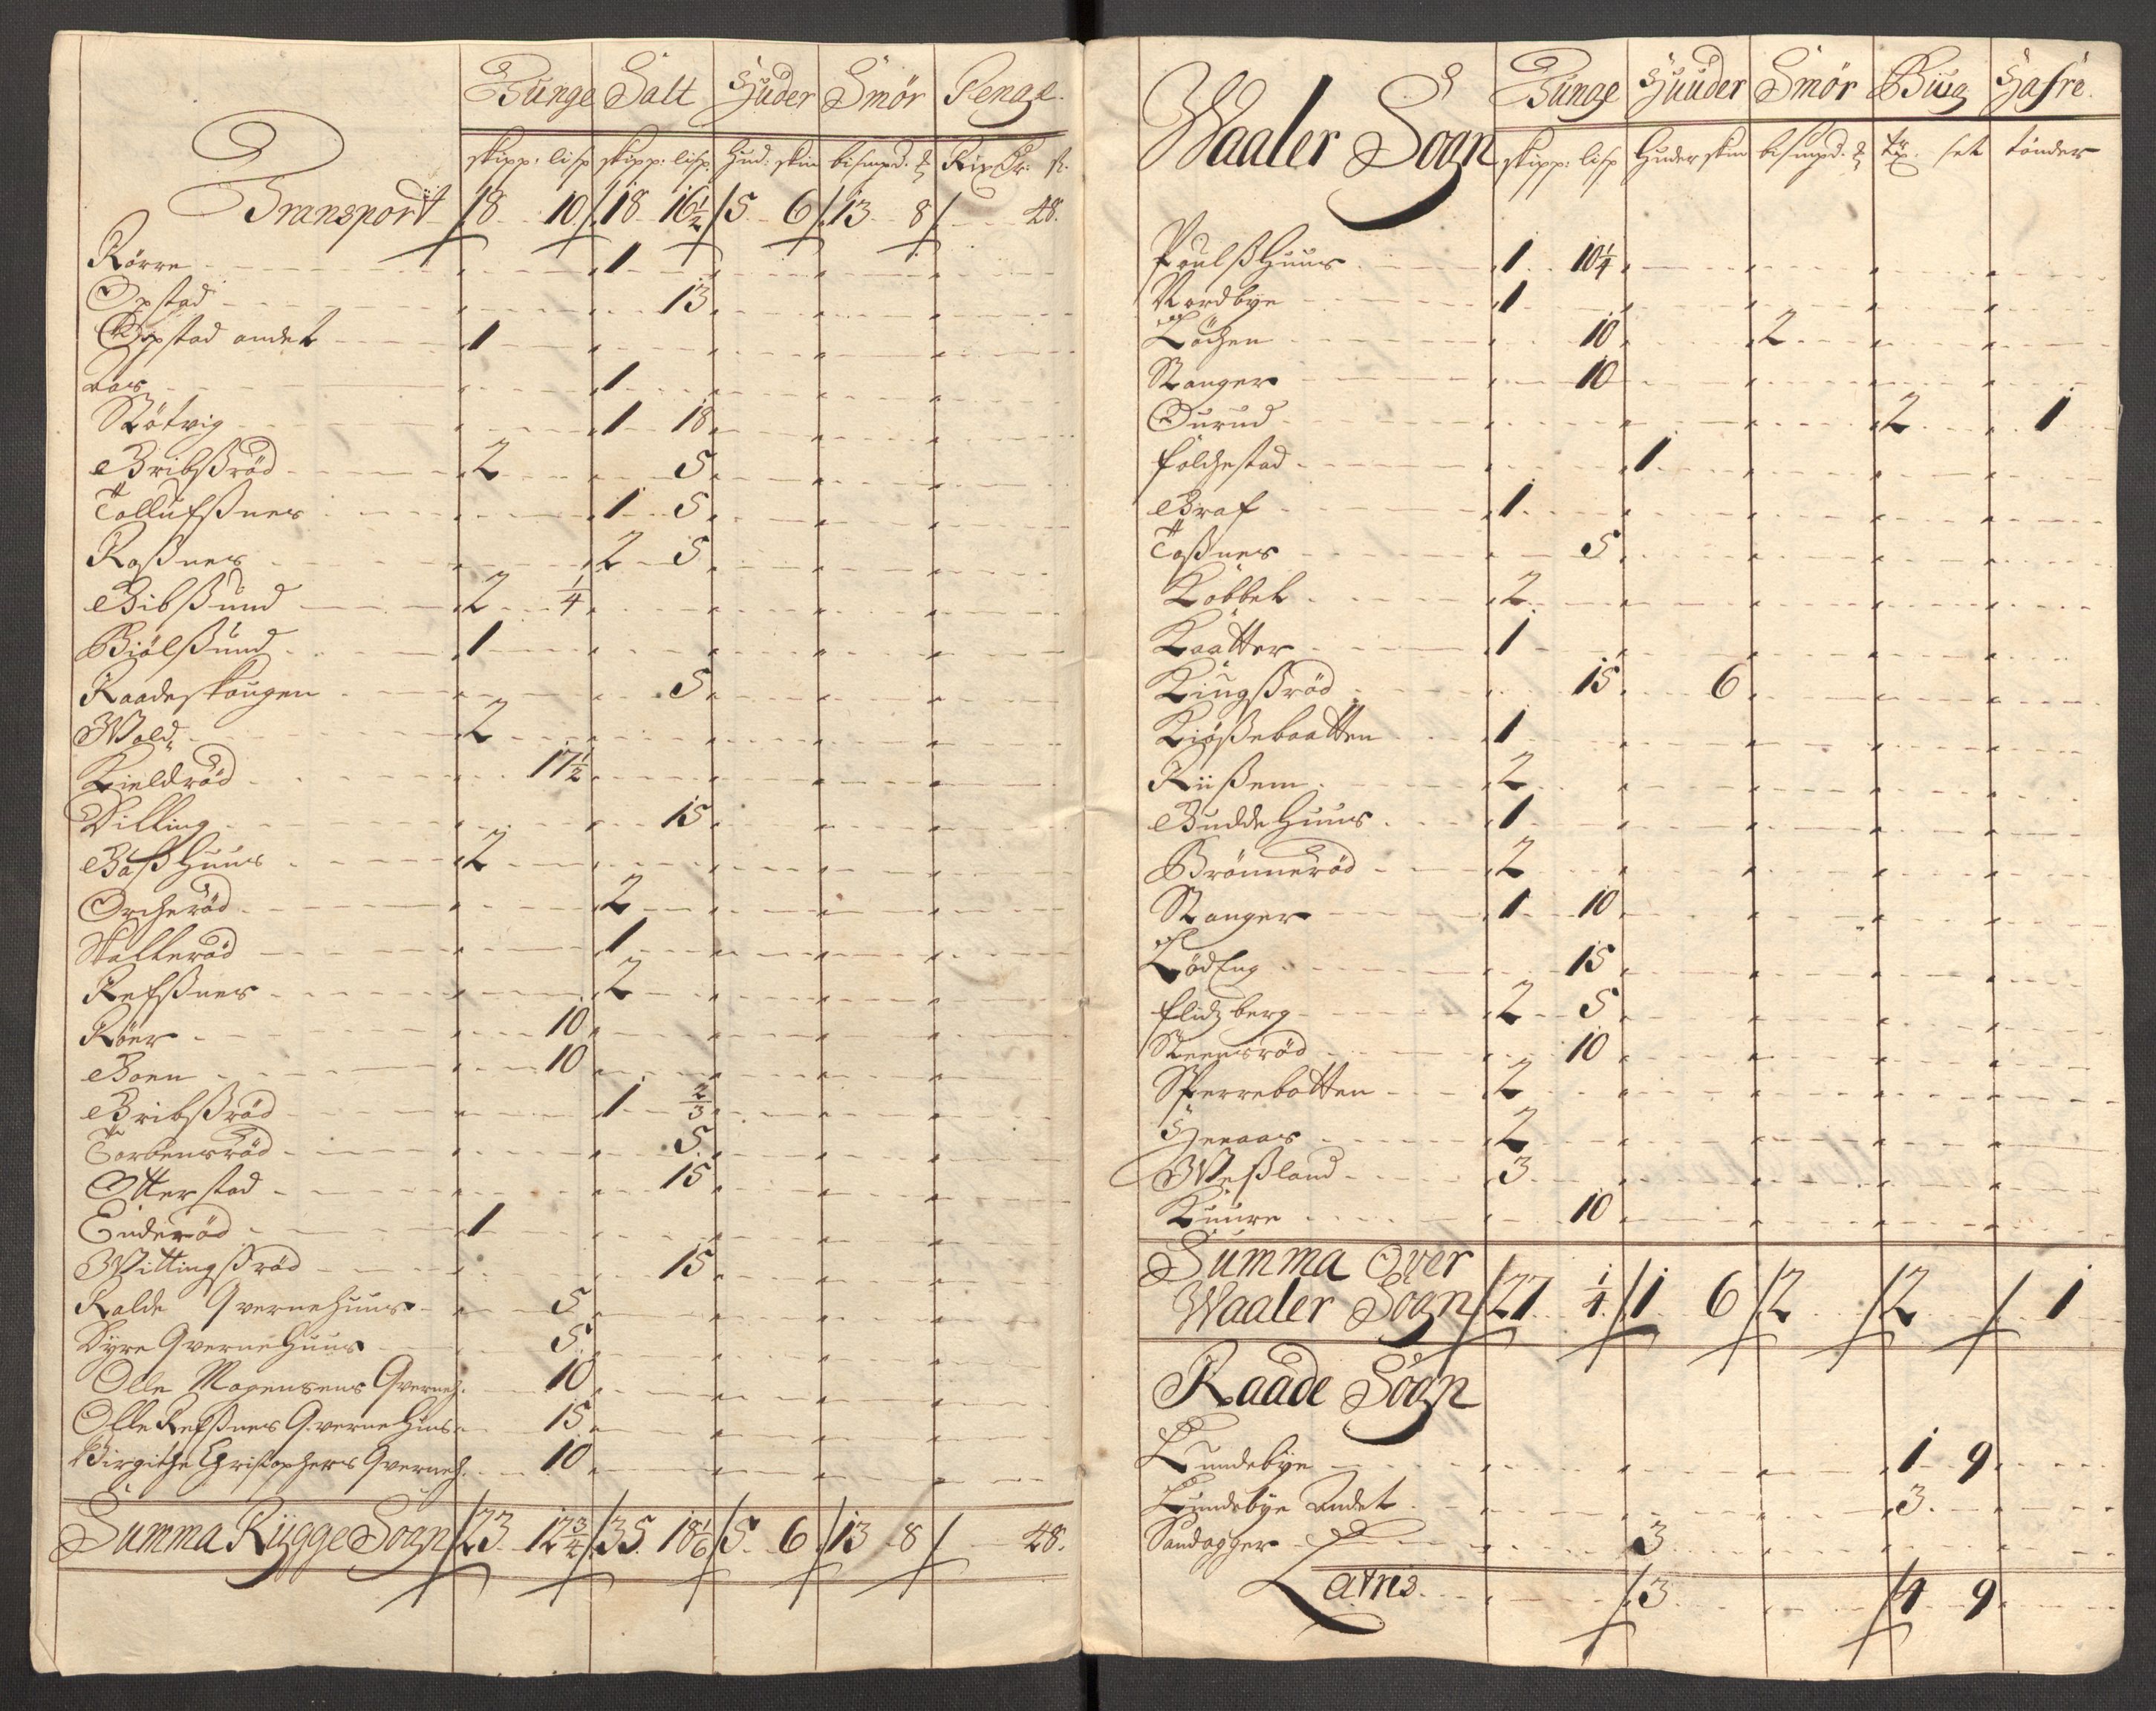 Tunge Salt Huder Smör Penge
skipp: lisp skipp: lisp: Hud: skin bismpd: ℔ Rix Or: st.
Transport 18 10 18 16½ 5 6 13 8 48.
Rörre 1
Opstad 13
Opstad andet 1
aas 1
Störvig 1 18
Bribsßröd 2 5
Tollufsßnes 1 5
Roßnes 2 5
Bibßund 2 ¼
Biölßund 1
Raadeskougen 5
Wold 2
Kieldröd 17½
Dilling 15
Båß Huus 2
Orcheröd 2
Halleröd 1
Refßnes 2
Röer 10
Boen 10
Bribßröd 1 ⅔
Torbensröd 5
Otterstad 15
Enderöd 1
Wittingßröd 15
Kalde Qvernehuus 5
Dyre QverneHuus 5
Olle Mogensens Qverneh. 10
Olle Refßnes QverneHuus 15
Birgithe Christophers Qverneh. 10
Summa Rÿgge Sogn 23 12¾ 35 18⅙ 5 6 13 8 48.
Waaler Sogn
Tunge Huuder Smör Biug Hafre
skipp: lisp Huder skin bismpd. ℔ tö. set tönder
Poulßhuus 1 10¼
Nordbye 1
Löchen 10 2
Stanger 10
Ourud 2 1
folchestad 1
Graf 1
Toßnes 5
Kobbel 2
Kaatter 1
Kiugßröd 15 6
Kiößebaatten 1
Riißem 2
Budde Huus 1
Brönneröd 2
Stanger 1 10
LödEng 15
flidzberg 2 5
Steensröd 10
Sperrebotten 2
Henaas 2
Weßland 3
Kuure 10
Summa Over
Waaler Sogn 27 ¼ 1 6 2 2 1
Raade Sogn
Lundebye 1 9
Lundebye Andet 3
Sandagger 3
Latus 3 4 9